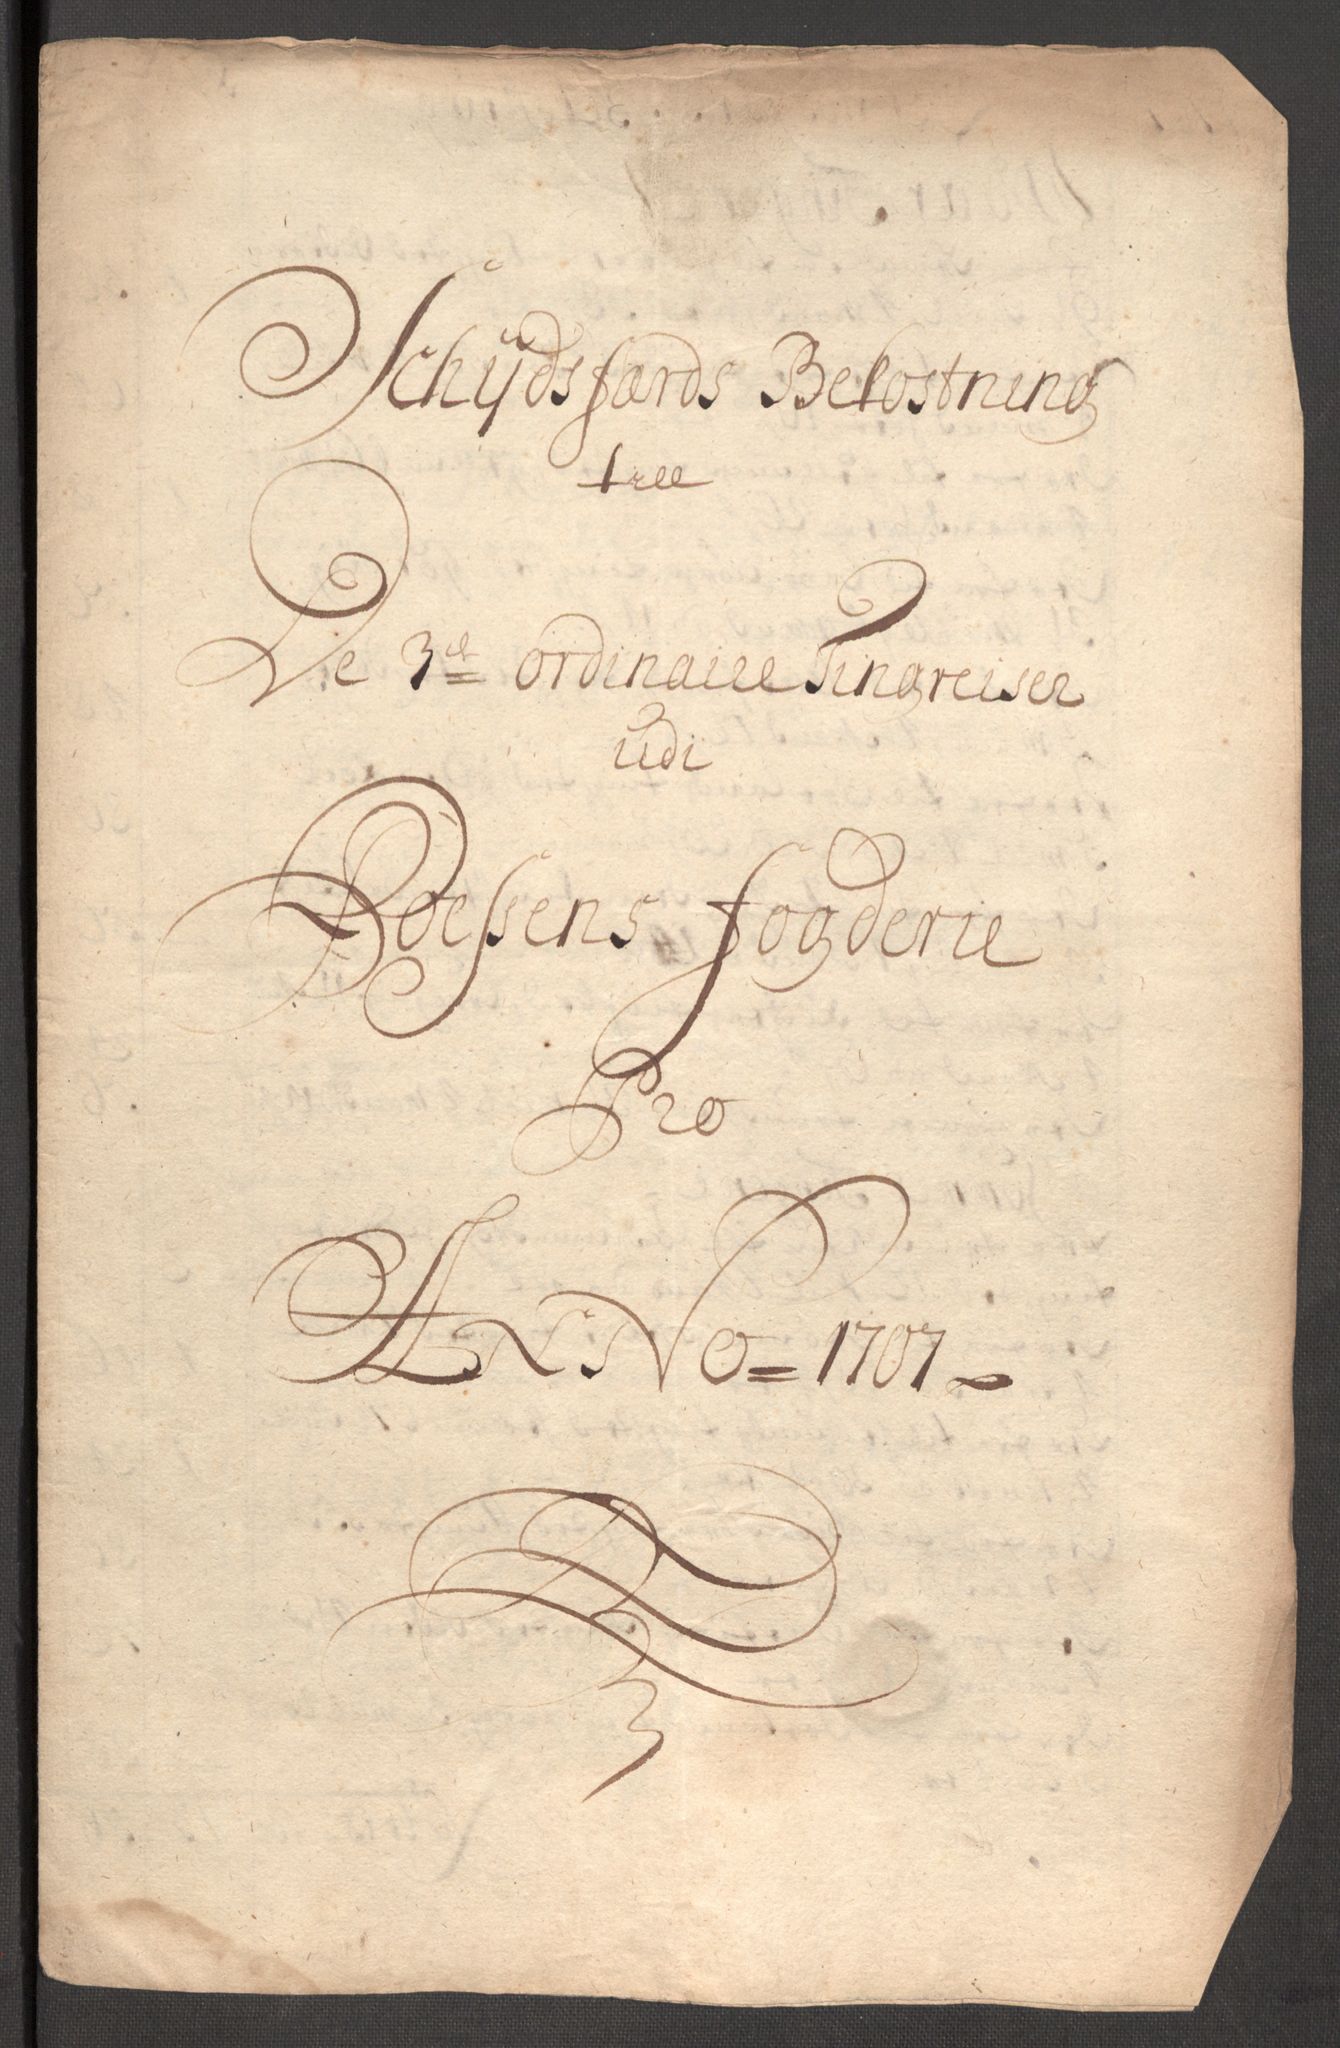 Schÿdsfærds Bekostning
till
De 3de ordinaire Tingreiser
udi
Woessens fogderie
Pro
ANNo = 1707